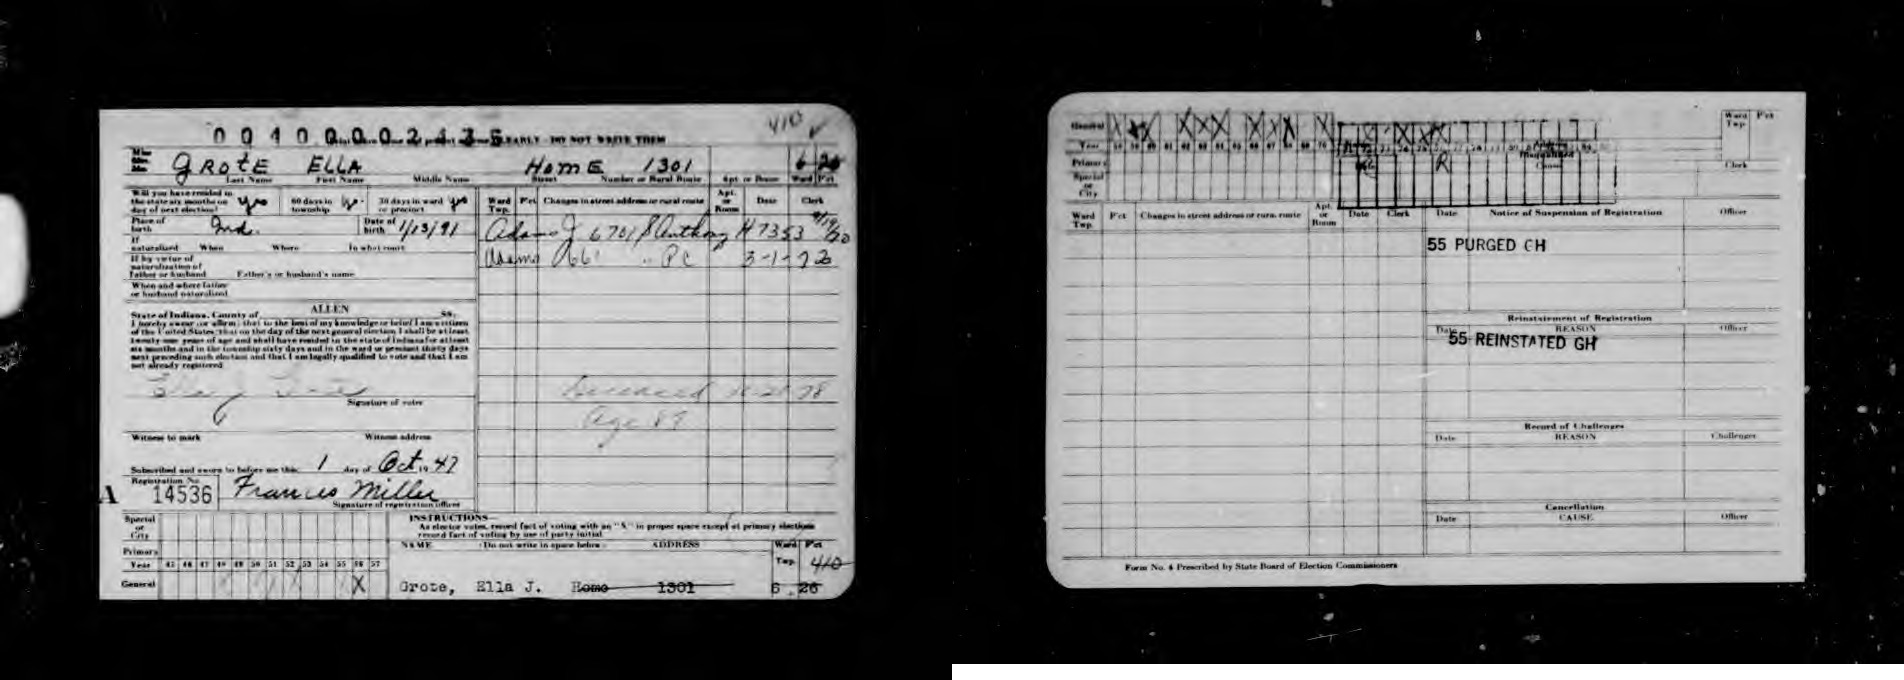 410
0040000243
EARLY - DO NOT WRITE THEM
Miss
Mrs.
Mr.
GROTE ELLA HOME 1301 6 26
Last Name First Name Middle Name Street Number or Rural Route Apt. or Room Ward Pct
Will you have resided in the state six months on day of next election? yes 60 days in township 30 days in ward or precinct yes
Ward Twp. Pct Changes in street address or rural route Apt. or Room Date Clerk
Place of birth Ind. Date of birth 1/13/91
Adams J 6701 S Anthony H 7353
If naturalized When Where In what court
Adams PC 3-1-72
If by virtue of naturalization of Father or husband Father's or husband's name
When and where father or husband naturalized
State of Indiana, County of ALLEN SS:
I hereby swear (or affirm) that to the best of my knowledge or belief I am a citizen
of the United States; that on the day of the next general election I shall be at least
twenty-one years of age and shall have resided in the state of Indiana for at least
six months and in the township sixty days and in the ward or precinct thirty days
next preceding such election and that I am legally qualified to vote and that I am
not already registered
Deceased 78
Age 87
Signature of voter
Witness to mark Witness address
Subscribed and sworn to before me this 1 day of Oct 1947
Registration No.
A 14536 Frances Miller
Signature of registration officer
Special or City
Primary
Year 45 46 47 48 49 50 51 52 53 54 55 56 57
General X
INSTRUCTIONS
As elector votes, record fact of voting with an "X" in proper space except at primary elections
record fact of voting by use of party initial
NAME (Do not write in space below) ADDRESS Ward Pct
Twp. 410
Grote, Ella J. Home 1301 6 26
General
Year
Primary
Special or City
R
Ward Twp Pct
Clerk
Ward Twp. Pct Changes in street address or rural route Apt. or Room Date Clerk Date Notice of Suspension of Registration Officer
55 PURGED GH
Reinstatement of Registration
Date REASON Officer
55 REINSTATED GH
Record of Challenges
Date REASON Challenger
Cancellation
Date CAUSE Officer
Form No. 4 Prescribed by State Board of Election Commissioners